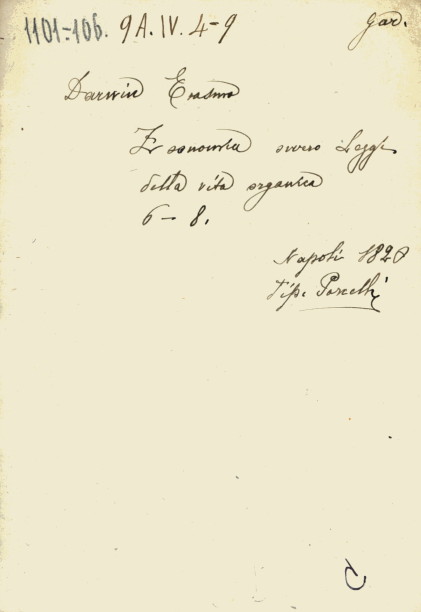 1101-106. 9A.IV. 4-9 Gar.
Darwin Erasmo
Zoonomia ovvero Leggi
della vita organica
6 - 8.
Napoli 1820
Tip. Porcelli